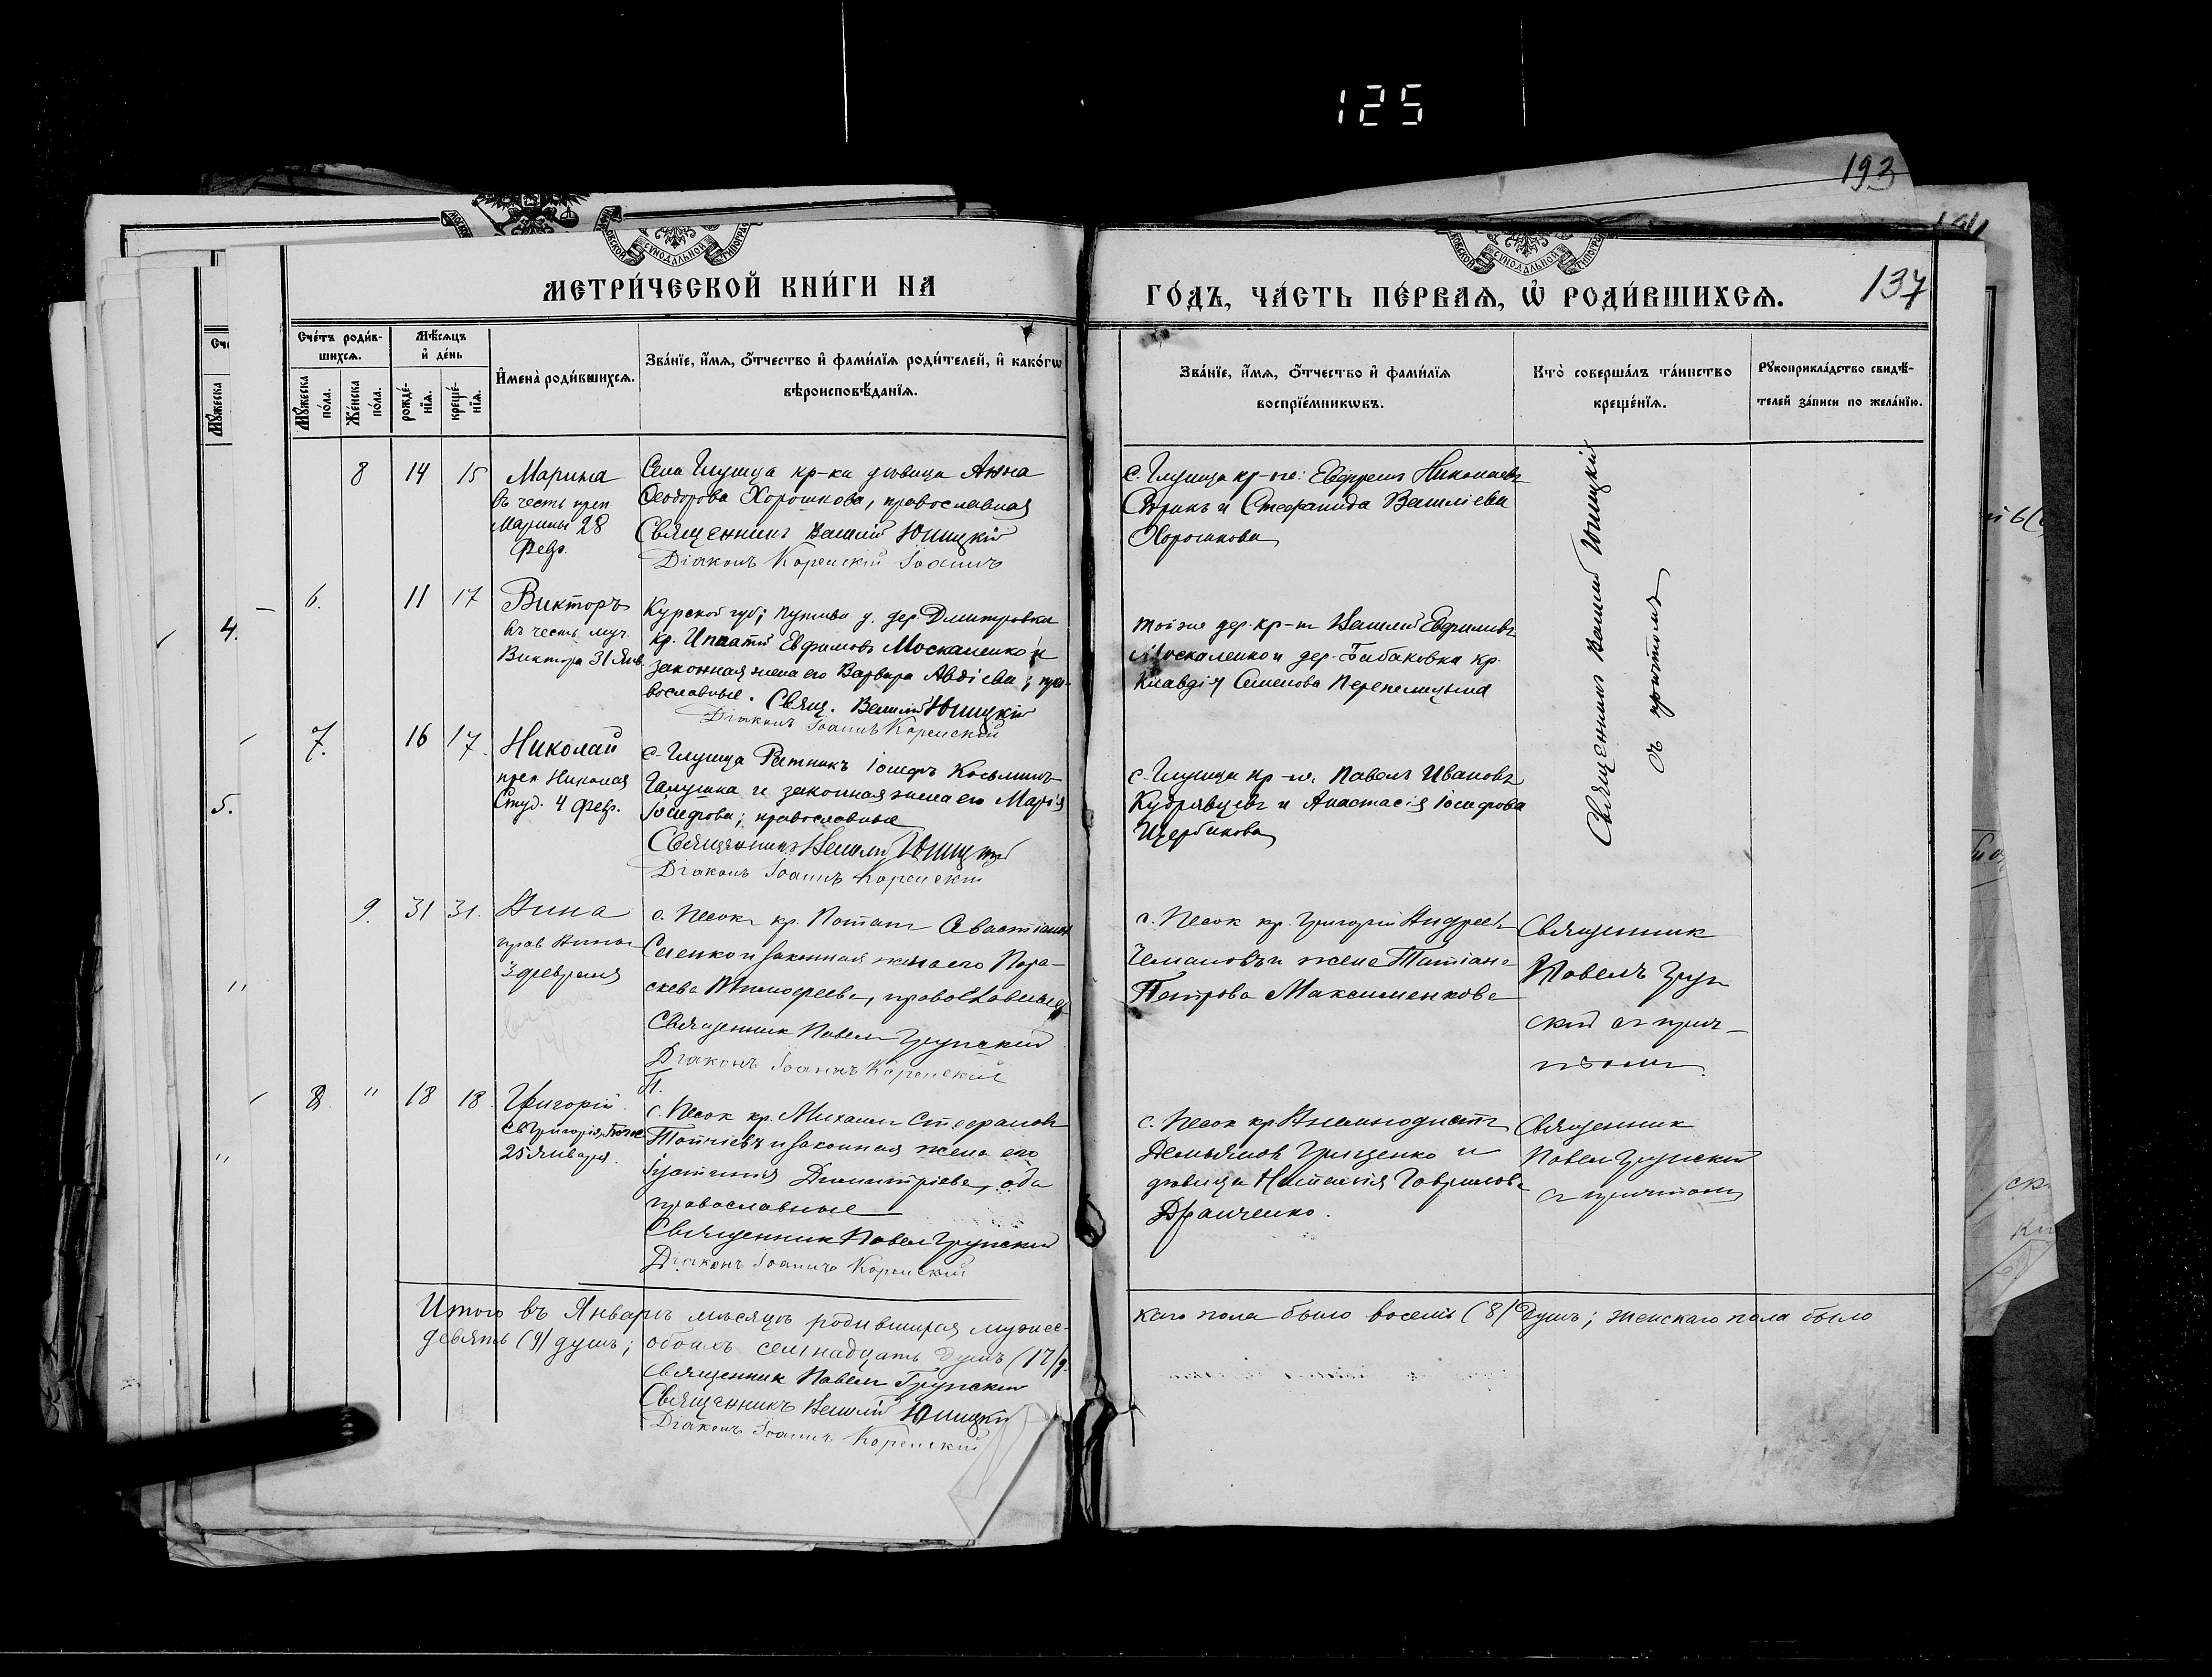 125
193
137
МЕТРИ́ЧЕСКОЙ КНИ́ГИ НА
ГО́ДЪ, ЧА́СТЬ ПЕ́РВАЯ, Ѡ҆ РОДИ́ВШИХСЯ.
Сче́тъ роди́в-
шихся.
Мѣ́сяцъ
и҆ де́нь
И҆мена̀ роди́вшихся.
Зва́нїе, и҆́мя, ѻ҆́тчество и҆ фами́лїя роди́телей, и҆ како́гѡ
вѣроисповѣ́данїя.
Мꙋ́жеска
по́ла.
Же́нска
по́ла.
рожде́-
нїя.
креще́-
нїя.
Зва́нїе, и҆́мя, ѻ҆́тчество и҆ фами́лїя
воспрїе́мникѡвъ.
Кто̀ соверша́лъ та́инство
креще́нїя.
Рꙋкоприкла́дство свидѣ́-
телей за́писи по жела́нїю.
8 14 15
Марина
въ честь преп
Марины 28
Февр.
Села Глушца кр-ка дѣвица Анна
Ѳеодорова Хорошкова, православная
Священникъ Василій Юницкій
Діаконъ Коренскій Іоаннъ
с. Глушца кр-не: Евфремъ Николаевъ
и Стефанида Василіева
Хорошкова
Священникъ Василій Юницкій
съ причтомъ
6. 11 17
Викторъ
въ честь муч.
Виктора 31 Янв.
Курской губ; Путивл у. дер. Дмитровки
кр. Ипатій Евфимовъ Москаленко и
законная жена его Варвара Авдіева; пра-
вославные. Свящ. Василій Юницкій
Діаконъ Іоаннъ Коренскій
той же дер. кр-нъ Василій Евфимовъ
Москаленко и дер. Бибаковка кр.
Клавдія Семенова Перепелицына
7. 16 17.
Николай
преп. Николая
Студ. 4 февр.
с. Глушца Ратникъ Іосифъ Косьминъ
Галушка и законная жена его Марія
Іосифова; православные
Священникъ Василій Юницкій
Діаконъ Іоаннъ Коренскій
с. Глушца кр-не. Павелъ Ивановъ
Кудрявцевъ и Анастасія Іосифова
Щербакова
9. 31 31.
Анна
прав. Анны
3 февраля
с. Песок кр. Потапъ Севастіановъ
и законная жена его Пара-
скева Тимофеева, православные
Священник Павелъ
Діаконъ Іоаннъ Коренскій
с. Песок кр. Григорій Андреевъ
и жена Татіана
Петрова Максименкова
Священник
Павелъ
съ прич-
томъ.
8. " 18 18.
Григорій.
Св. Григорія Богос
25 Января.
с. Песок кр. Михаилъ Стефановъ
и законная жена его
Димитріева, оба
православные
Священник Павелъ
Діаконъ Іоаннъ Коренскій
с. Песок кр.
Демьяновъ Грищенко и
дѣвица Наталія Гаврилова
Драпченко.
Священник
Павелъ
съ причтомъ
4.
5.
Итого въ Январѣ мѣсяцѣ родившихся мужес-
каго пола было восемь (8) душъ; женскаго пола было
девять (9) душъ; обоихъ семнадцать душъ (17) д.
Священник Павелъ
Священникъ Василій Юницкій
Діаконъ Іоаннъ Коренскій